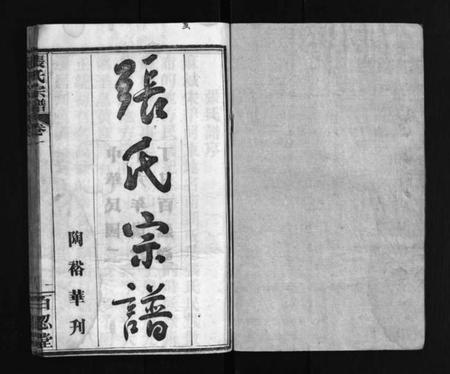 張氏宗譜
陶裕華刊
張氏宗譜
卷一
百忍堂